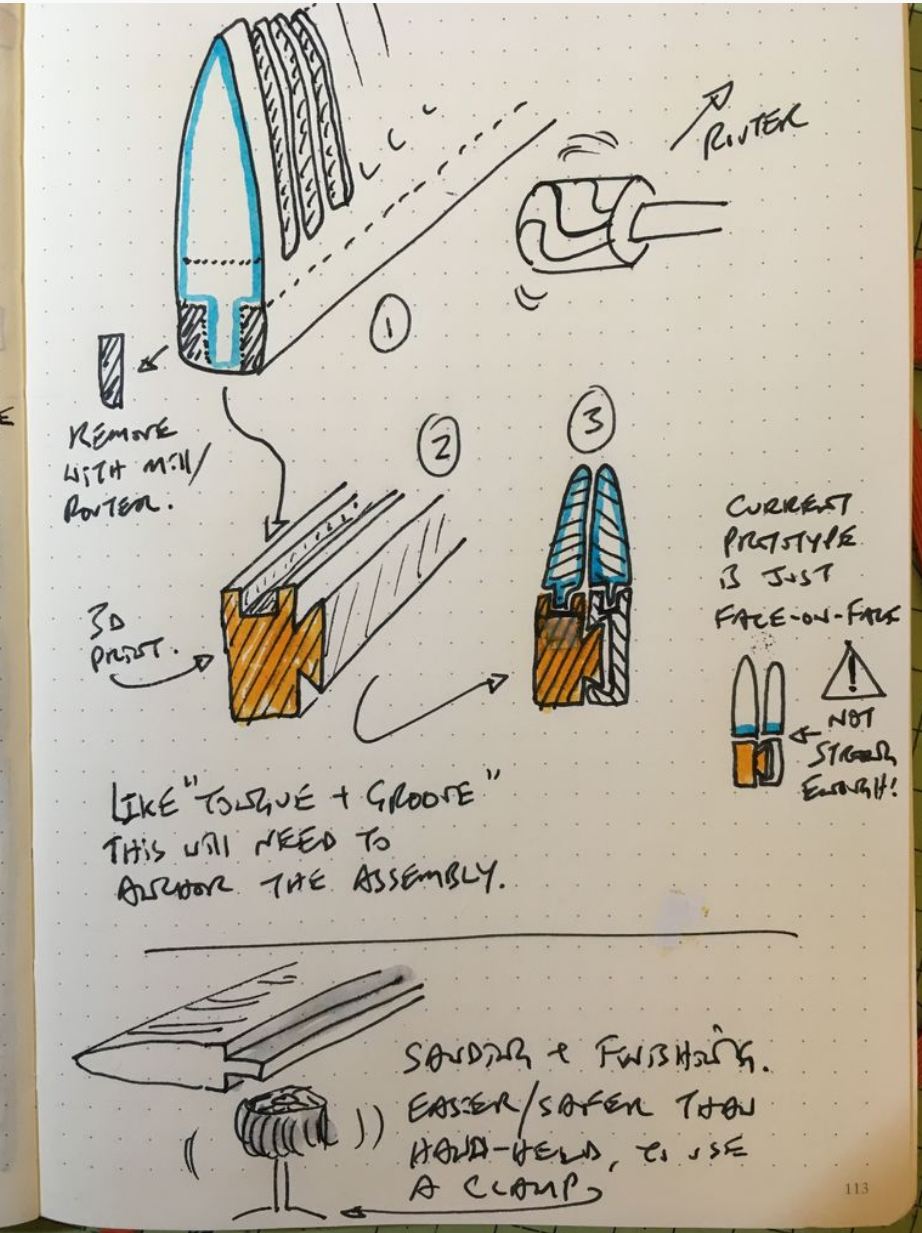 ROUTER
1
REMOVE
WITH MILL/
ROUTER.
2
3
3D
PRINT.
CURRENT
PROTOTYPE
IS JUST
FACE-ON-FACE
!
NOT
STRONG
ENOUGH!
LIKE "TONGUE + GROOVE"
THIS WILL NEED TO
ANCHOR THE ASSEMBLY.
SANDING + FINISHING.
EASIER/SAFER THAN
HAND-HELD, TO USE
A CLAMP
113